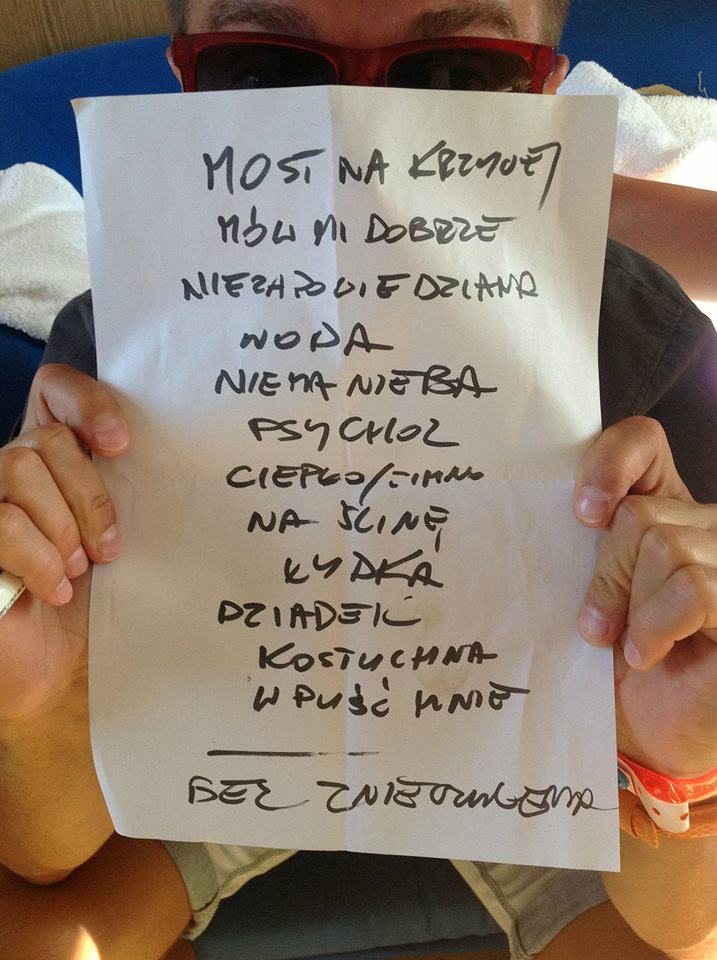 MOST NA KRZYWEJ
MÓW MI DOBRZE
NIEZAPOWIEDZIANA
WODA
NIEMA NIEBA
PSYCHOL
CIEPŁO/ZIMNO
NA ŚLINĘ
ŁYDKA
DZIADEK
KOSTUCHNA
WPUŚĆ MNIE
BEZ ZNIECZULENIA